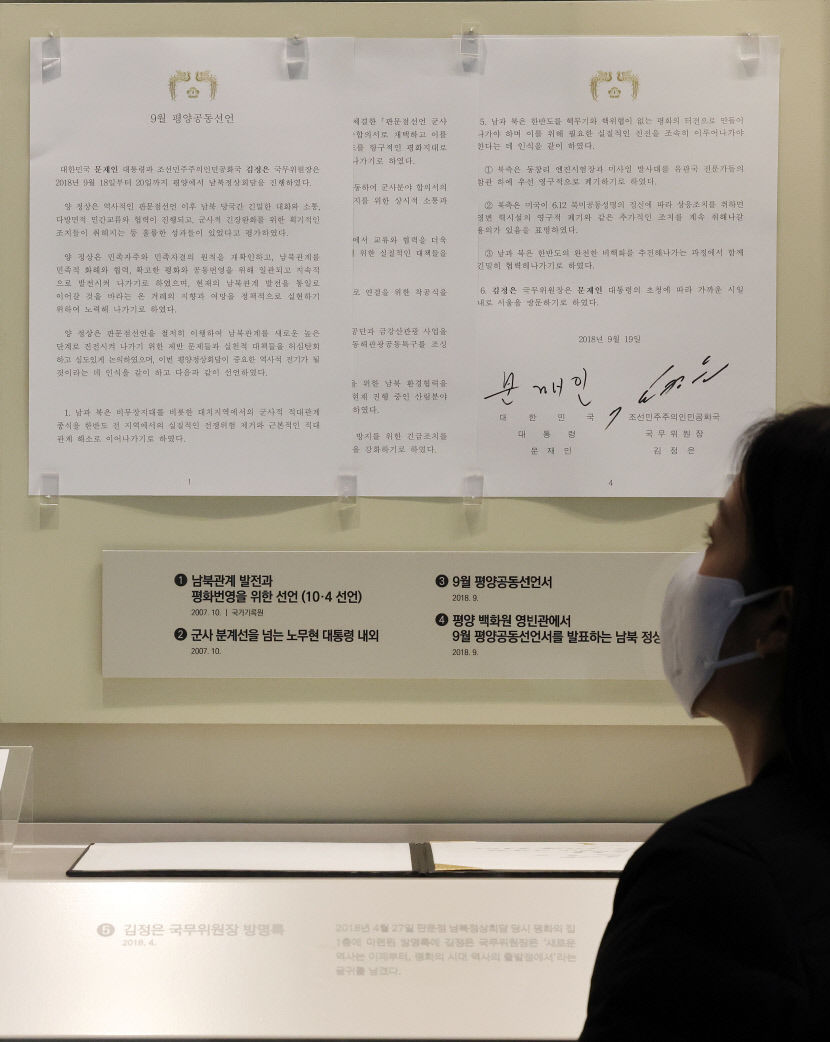 9월 평양공동선언
대한민국 문재인 대통령과 조선민주주의인민공화국 김정은 국무위원장은
2018년 9월 18일부터 20일까지 평양에서 남북정상회담을 진행하였다.
양 정상은 역사적인 판문점선언 이후 남북 당국간 긴밀한 대화와 소통,
다방면적 민간교류와 협력이 진행되고, 군사적 긴장완화를 위한 획기적인
조치들이 취해지는 등 훌륭한 성과들이 있었다고 평가하였다.
양 정상은 민족자주와 민족자결의 원칙을 재확인하고, 남북관계를
민족적 화해와 협력, 확고한 평화와 공동번영을 위해 일관되고 지속적
으로 발전시켜 나가기로 하였으며, 현재의 남북관계 발전을 통일로
이어갈 것을 바라는 온 겨레의 지향과 여망을 정책적으로 실현하기
위하여 노력해 나가기로 하였다.
양 정상은 판문점선언을 철저히 이행하여 남북관계를 새로운 높은
단계로 진전시켜 나가기 위한 제반 문제들과 실천적 대책들을 허심탄회
하고 심도있게 논의하였으며, 이번 평양정상회담이 중요한 역사적 전기가 될
것이라는 데 인식을 같이 하고 다음과 같이 선언하였다.
1. 남과 북은 비무장지대를 비롯한 대치지역에서의 군사적 적대관계
종식을 한반도 전 지역에서의 실질적인 전쟁위험 제거와 근본적인 적대
관계 해소로 이어나가기로 하였다.
1
체결한 「판문점선언 군사
합의서로 채택하고 이를
를 항구적인 평화지대로
나가기로 하였다.
동하여 군사분야 합의서의
지를 위한 상시적 소통과
에서 교류와 협력을 더욱
위한 실질적인 대책들을
로 연결을 위한 착공식을
공단과 금강산관광 사업을
동해관광공동특구를 조성
을 위한 남북 환경협력을
현재 진행 중인 산림분야
하였다.
방지를 위한 긴급조치를
을 강화하기로 하였다.
5. 남과 북은 한반도를 핵무기와 핵위협이 없는 평화의 터전으로 만들어
나가야 하며 이를 위해 필요한 실질적인 진전을 조속히 이루어나가야
한다는 데 인식을 같이 하였다.
① 북측은 동창리 엔진시험장과 미사일 발사대를 유관국 전문가들의
참관 하에 우선 영구적으로 폐기하기로 하였다.
② 북측은 미국이 6.12 북미공동성명의 정신에 따라 상응조치를 취하면
영변 핵시설의 영구적 폐기와 같은 추가적인 조치를 계속 취해나갈
용의가 있음을 표명하였다.
③ 남과 북은 한반도의 완전한 비핵화를 추진해나가는 과정에서 함께
긴밀히 협력해나가기로 하였다.
6. 김정은 국무위원장은 문재인 대통령의 초청에 따라 가까운 시일
내로 서울을 방문하기로 하였다.
2018년 9월 19일
문재인
대 한 민 국 조선민주주의인민공화국
대 통 령 국 무 위 원 장
문 재 인 김 정 은
4
❶ 남북관계 발전과
평화번영을 위한 선언 (10·4 선언)
2007. 10. | 국가기록원
❷ 군사 분계선을 넘는 노무현 대통령 내외
2007. 10.
❸ 9월 평양공동선언서
2018. 9.
❹ 평양 백화원 영빈관에서
9월 평양공동선언서를 발표하는 남북 정상
2018. 9.
❺ 김정은 국무위원장 방명록
2018. 4.
2018년 4월 27일 판문점 남북정상회담 당시 평화의 집
1층에 마련된 방명록에 김정은 국무위원장은 '새로운
역사는 이제부터, 평화의 시대 역사의 출발점에서'라는
글귀를 남겼다.